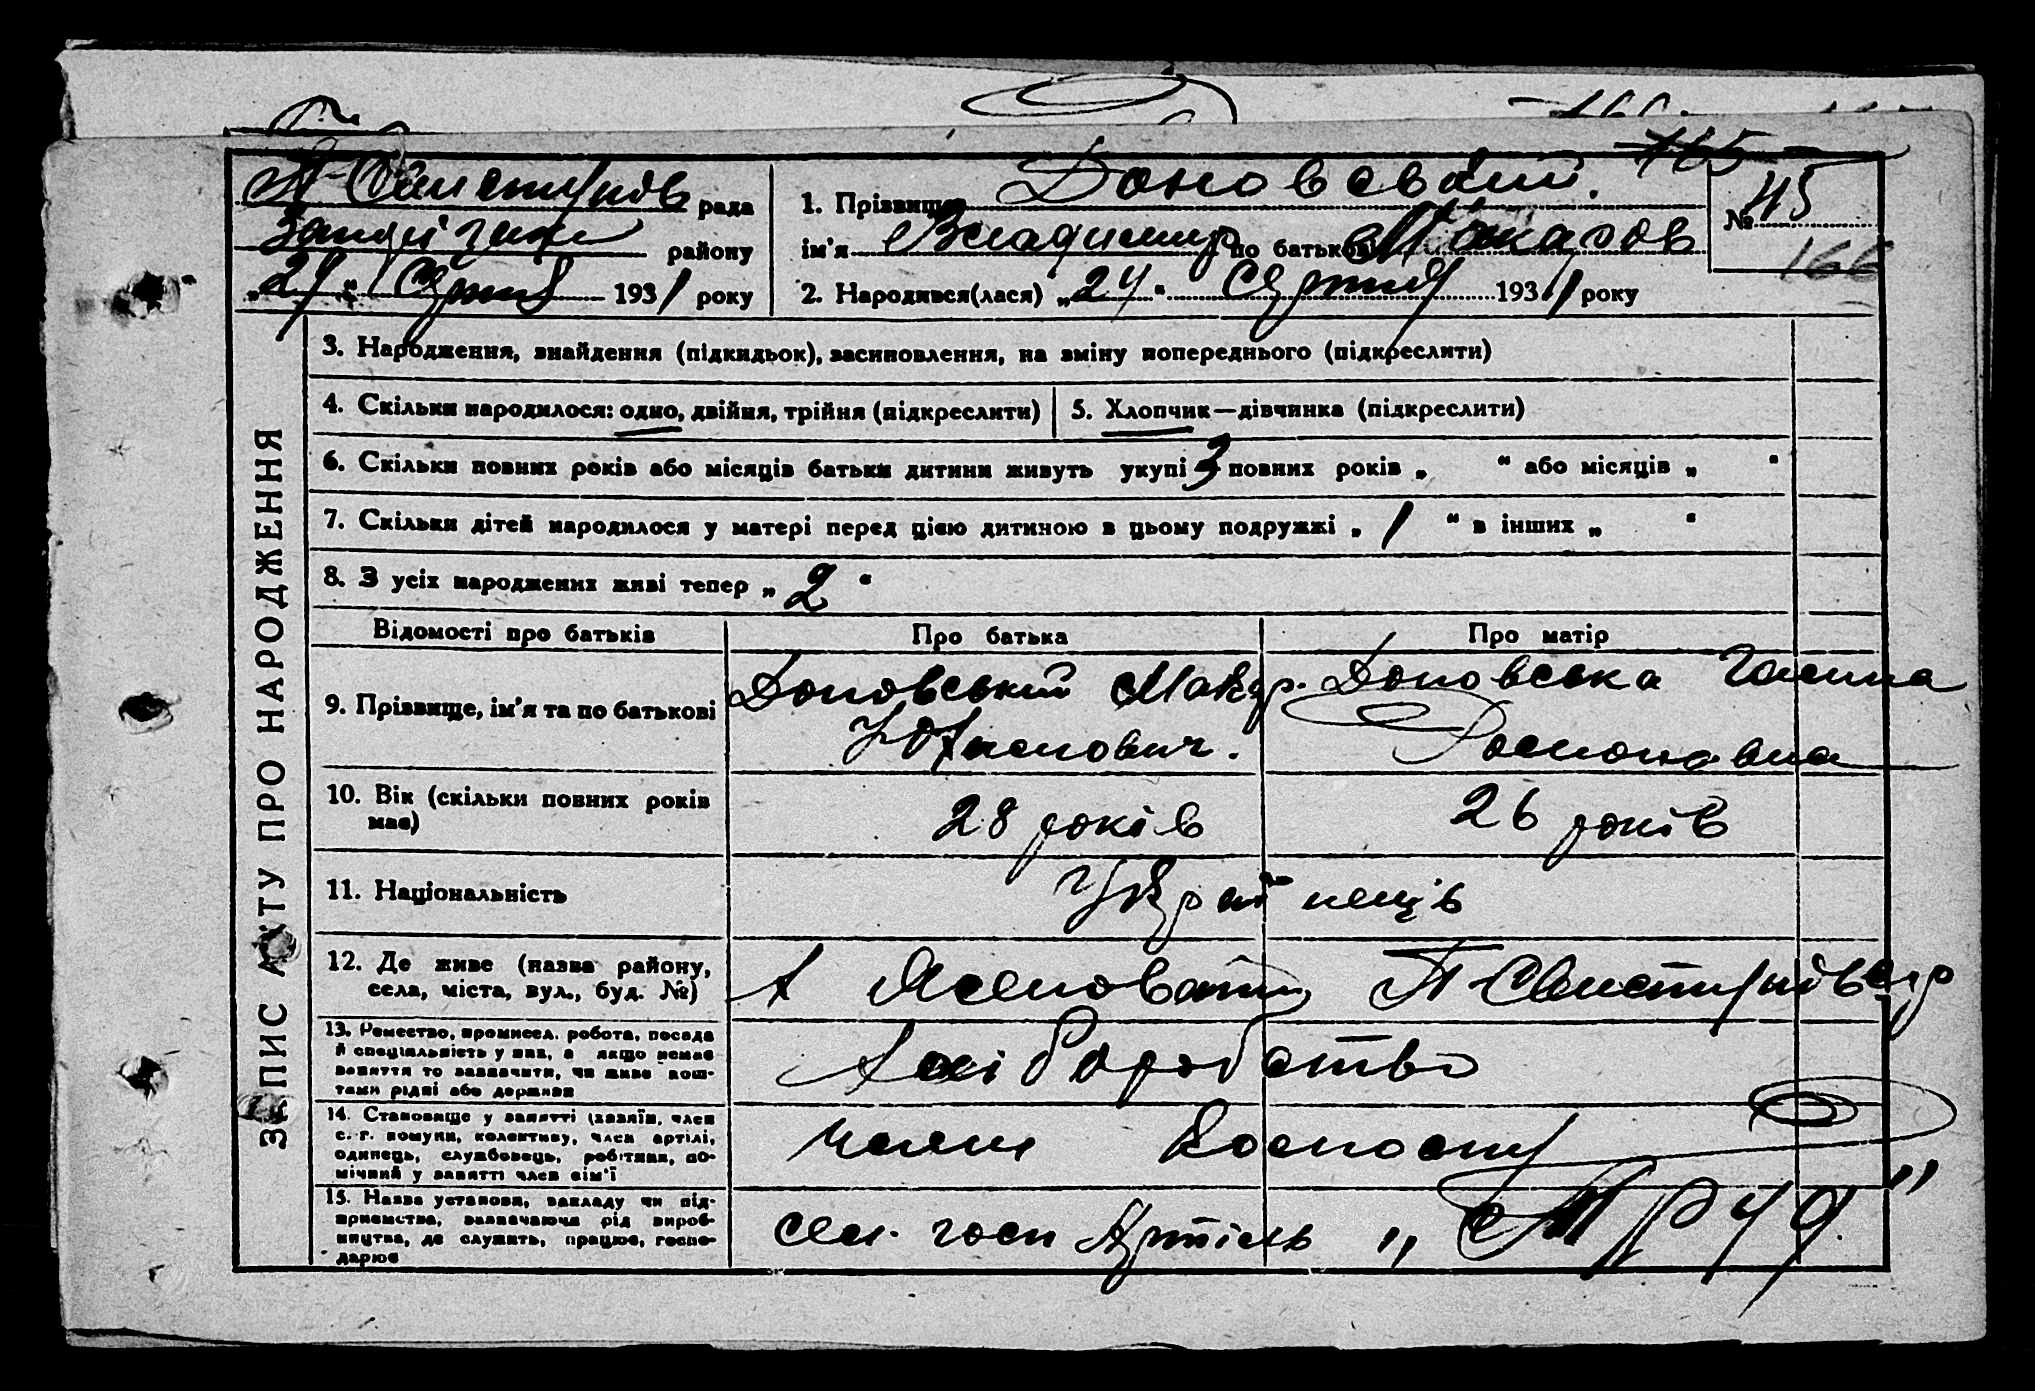 165
рада
району
„24“ Серпня 1931 року
1. Прізвище Доновський.
ім'я Владимир по батькові Макаров
2. Народився(лася) „24“ Серпня 1931 року
№ 45
166
ЗАПИС АКТУ ПРО НАРОДЖЕННЯ
3. Народження, знайдення (підкидьок), засиновлення, на зміну попереднього (підкреслити)
4. Скільки народилося: одно, двійня, трійня (підкреслити)
5. Хлопчик—дівчинка (підкреслити)
6. Скільки повних років або місяців батьки дитини живуть укупі 3 повних років „ “ або місяців „ “
7. Скільки дітей народилося у матері перед цією дитиною в цьому подружжі „ 1 “ в інших „ “
8. З усіх народжених живі тепер „ 2 “
Відомості про батьків
Про батька
Про матір
9. Прізвище, ім'я та по батькові
Доновський Макар.
Доновська Ганна
10. Вік (скільки повних років
має)
28 років
26 років
11. Національність
Українців
12. Де живе (назва району,
села, міста, вул., буд. №)
13. Ремество, промисел, робота, посада
й спеціальність у них, а якщо немає
заняття то зазначити, чи живе кош-
тами рідні або держави
Хліборобство
14. Становище у занятті (хазяїн, член
с.-г. комуни, колективу, член артілі,
одинець, службовець, робітник, по-
мічний у занятті член сім'ї
член
15. Назва установи, закладу чи під-
приємства, визначаючи рід вироб-
ництва, де служить, працює, госпо-
дарює
сел. госп Артіль „Труд"